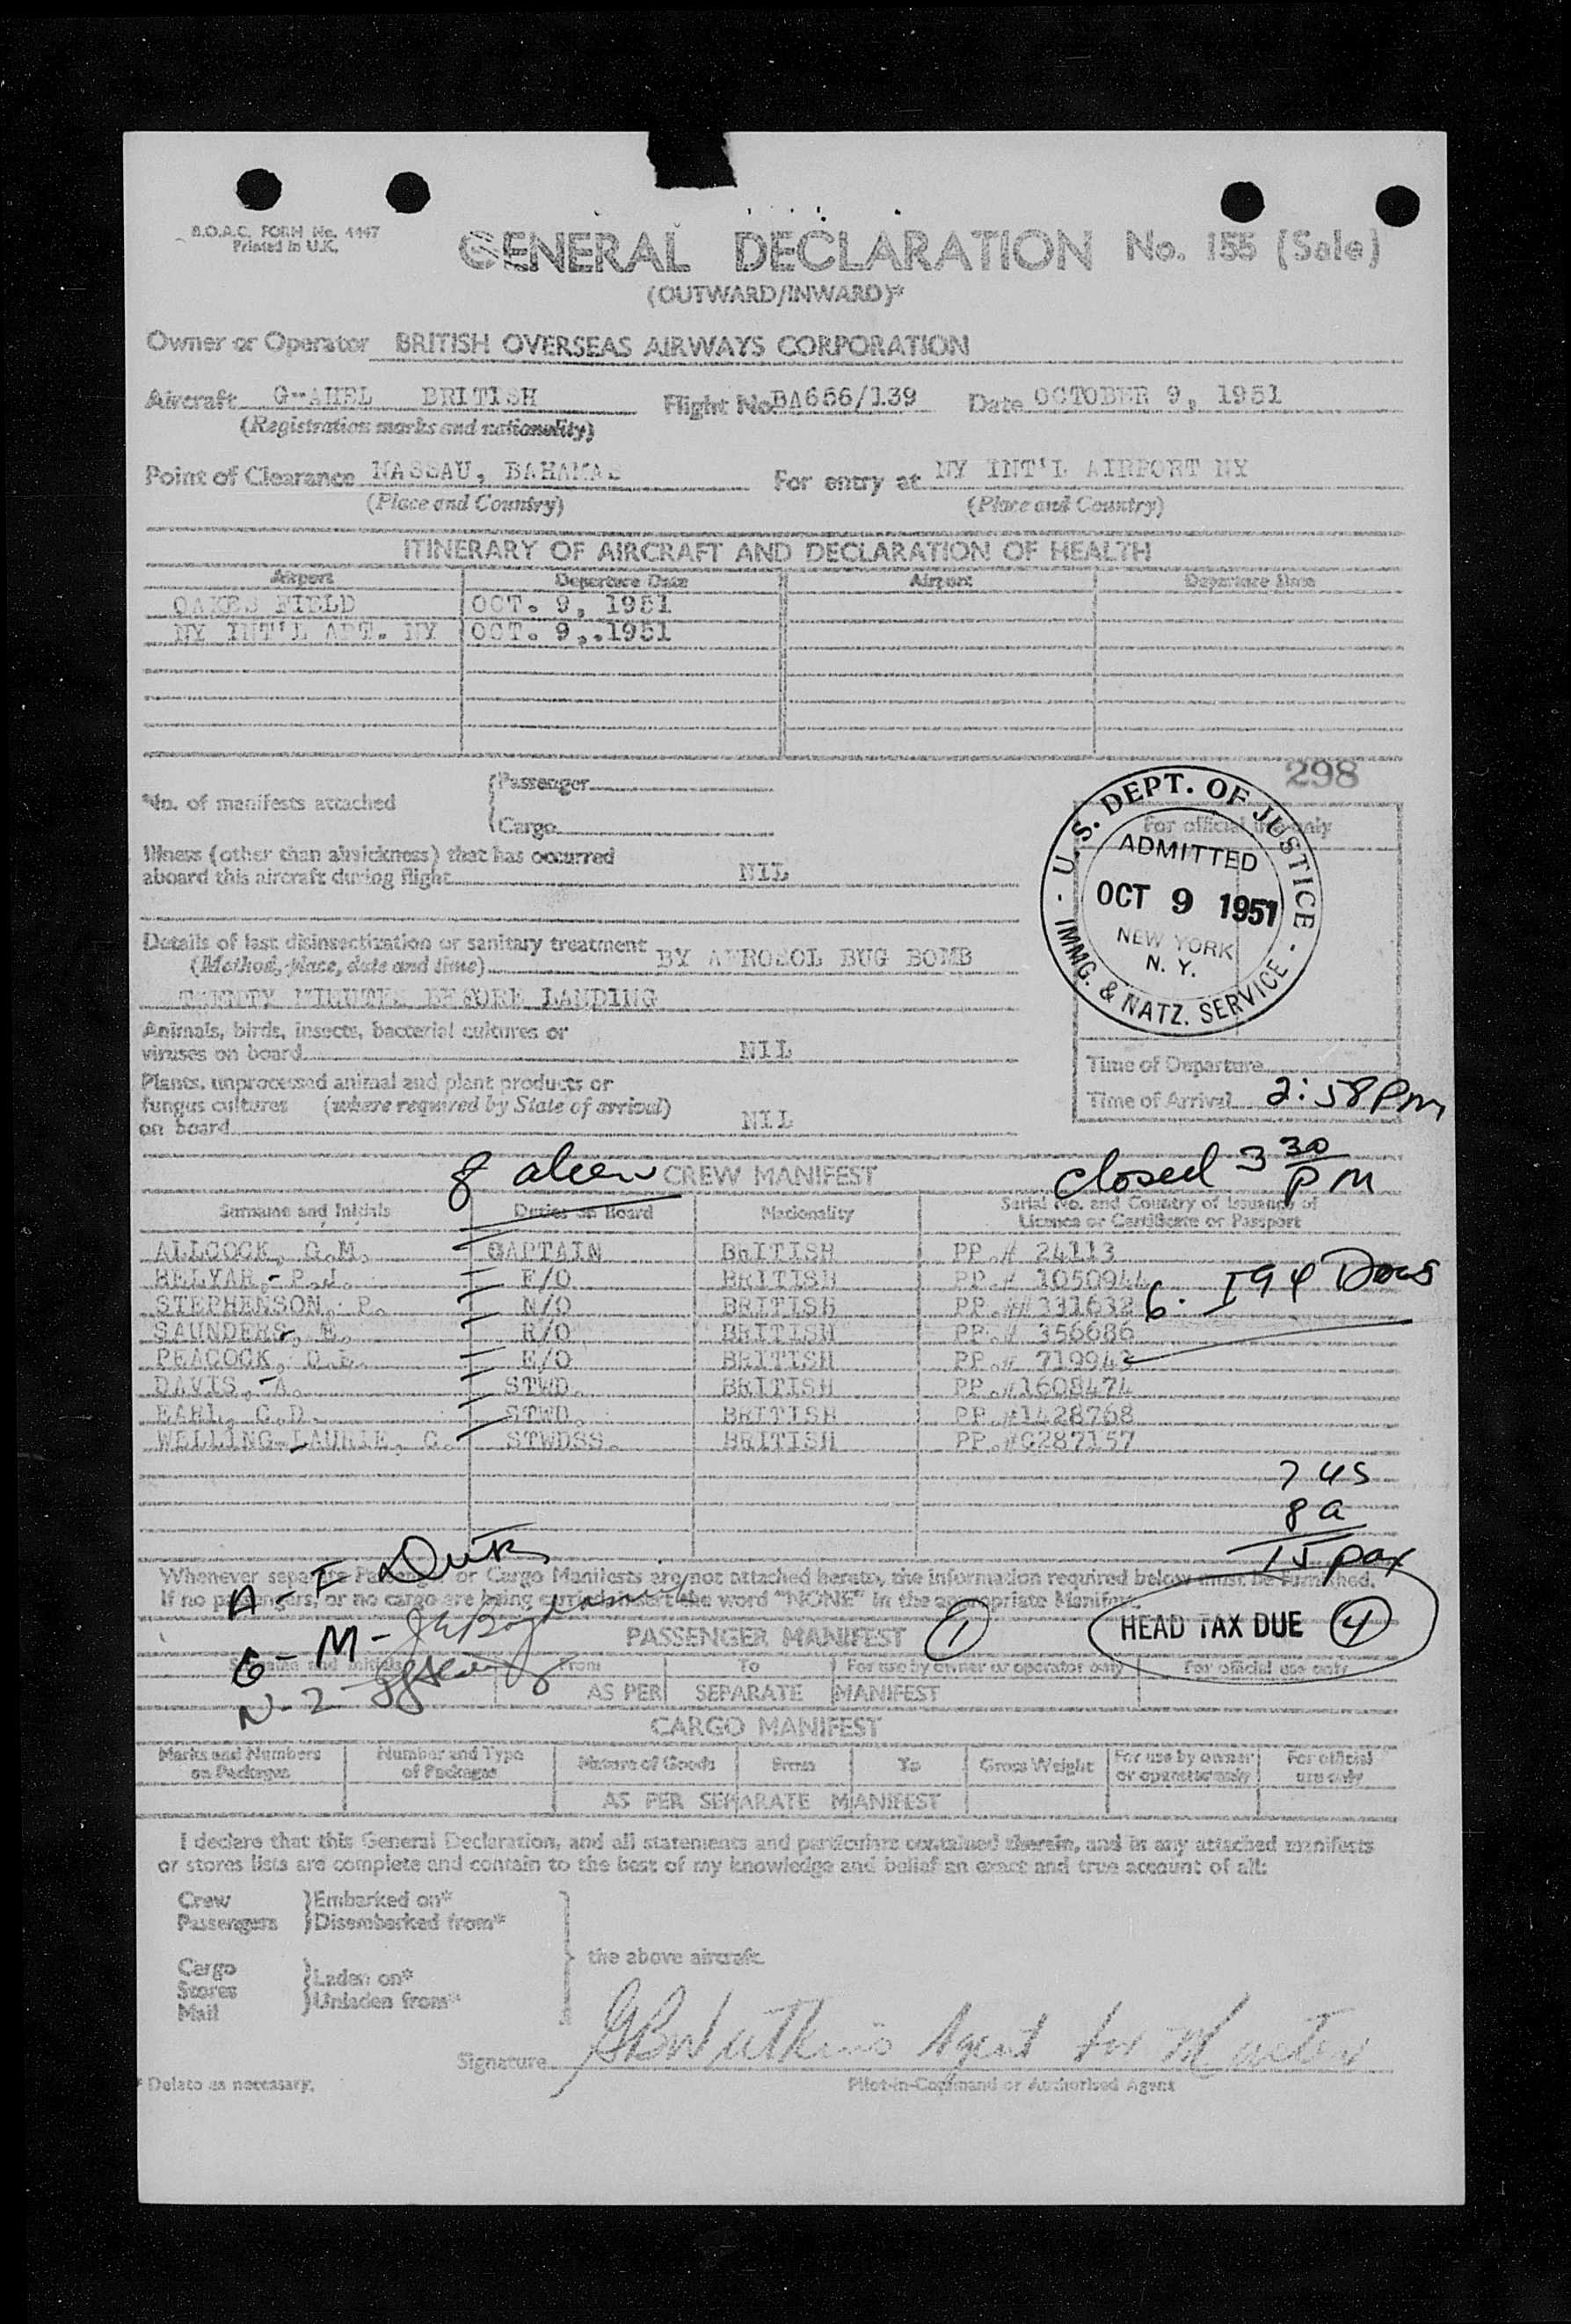 B.O.A.C. FORM No. 4447
Printed in U.K.
GENERAL DECLARATION No. 155 (Sale)
(OUTWARD/INWARD)*
Owner or Operator BRITISH OVERSEAS AIRWAYS CORPORATION
Aircraft G-AHEL BRITISH Flight No. BA666/139 Date OCTOBER 9, 1951
(Registration marks and nationality)
Point of Clearance NASSAU, BAHAMAS For entry at NY INT'L AIRPORT NY
(Place and Country) (Place and Country)
ITINERARY OF AIRCRAFT AND DECLARATION OF HEALTH
Airport Departure Date Airport Departure Date
OAKES FIELD OCT. 9, 1951
NY INT'L APT. NY OCT. 9,.1951
298
No. of manifests attached {Passenger
{Cargo
For official use only
Illness (other than airsickness) that has occurred
aboard this aircraft during flight NIL
U.S. DEPT. OF JUSTICE - IMMG. & NATZ. SERVICE -
ADMITTED
OCT 9 1951
NEW YORK
N. Y.
Details of last disinsectization or sanitary treatment
(Method, place, date and time) BY AEROSOL BUG BOMB
TWENTY MINUTES BEFORE LANDING
Animals, birds, insects, bacterial cultures or
viruses on board NIL
Time of Departure
Plants, unprocessed animal and plant products or
fungus cultures (where required by State of arrival)
on board NIL
Time of Arrival 2:58 PM
8 alien CREW MANIFEST closed 3 30 PM
Surname and Initials Duties on Board Nationality Serial No. and Country of Issuance of
Licence or Certificate or Passport
ALLCOCK, G.M. CAPTAIN BRITISH PP.# 24113
BELYAR, P.J. F/O BRITISH PP.# 1050944
6. I94 Docs
STEPHENSON, P. N/O BRITISH PP.## 331632
SAUNDERS, E. R/O BRITISH PP.# 356686
PEACOCK, D.E. E/O BRITISH PP.# 719943
DAVIS, A. STWD. BRITISH PP.#1608474
EARL, C.D. STWD. BRITISH PP.#1428768
WELLING-LAURIE, C. STWDSS. BRITISH PP.#C287157
7 US
8 a
15 pax
A - F
Whenever separate Passenger or Cargo Manifests are not attached hereto, the information required below must be furnished.
If no passengers, or no cargo are being carried insert the word "NONE" in the appropriate Manifest.
G - M -
PASSENGER MANIFEST 1 HEAD TAX DUE 4
Surname and Initials From To For use by owner or operator only For official use only
N - Z
AS PER SEPARATE MANIFEST
CARGO MANIFEST
Marks and Numbers on Packages Number and Type of Packages Nature of Goods From To Gross Weight For use by owner or operator only For official use only
AS PER SEPARATE MANIFEST
I declare that this General Declaration, and all statements and particulars contained therein, and in any attached manifests
or stores lists are complete and contain to the best of my knowledge and belief an exact and true account of all:
Crew }Embarked on*
Passengers }Disembarked from*
the above aircraft.
Cargo
Stores }Laden on*
Mail }Unladen from*
Signature GB Watkins Agent for Master
* Delete as necessary. Pilot-in-Command or Authorised Agent